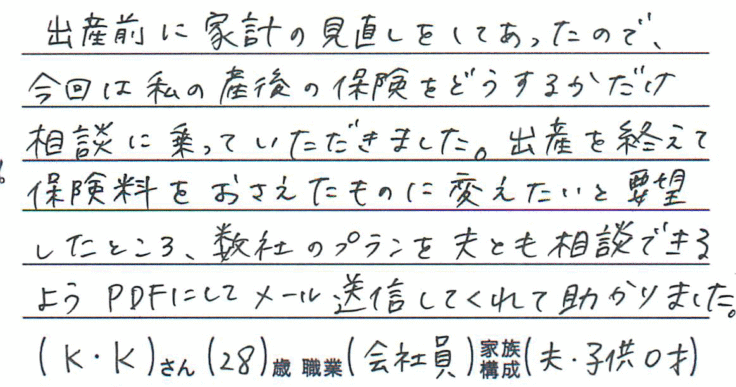 出産前に家計の見直しをしてあったので、
今回は私の産後の保険をどうするかだけ
相談に乗っていただきました。出産を終えて
保険料をおさえたものに変えたいと要望
したところ、数社のプランを夫とも相談できる
ようPDFにしてメール送信してくれて助かりました。
(K・K)さん(28)歳 職業(会社員)家族構成(夫・子供0才)